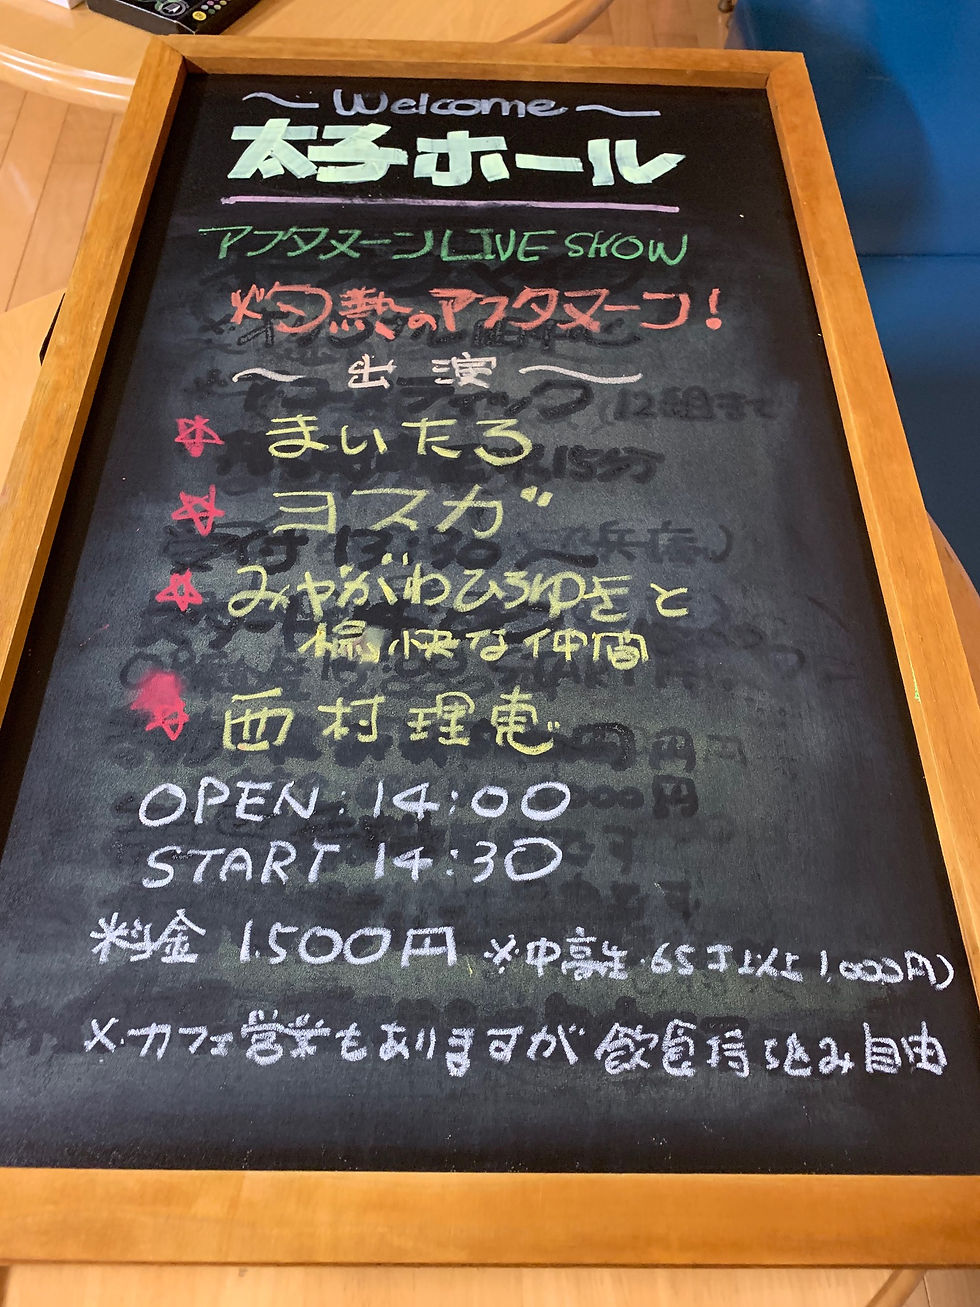 ～Welcome～
太子ホール
アフタヌーンLIVE SHOW
灼熱のアフタヌーン！
～出演～
☆ まいたろ
☆ ヨスガ
☆ みやがわひろゆきと
愉快な仲間
☆ 西村理恵
OPEN 14:00
START 14:30
料金 1.500円 ※中高生.65才以上1,000円)
※.カフェ営業もありますが 飲食持ち込み自由